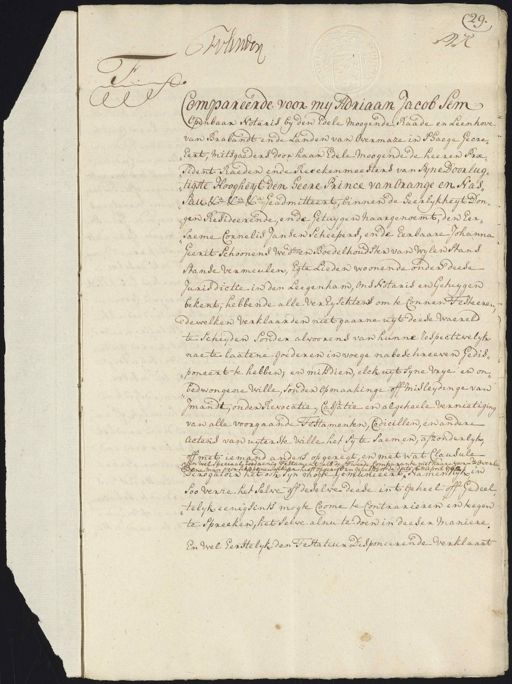 29.
Compareerde voor mij Adriaan Jacob Sem
Openbaar Notaris by den Edele Moogende Raade en Leenhove
van Brabandt ende Landen van Overmaze in s'Haege Geere-
sideert, mitsgaders door haar Edele Moogende de heeren Pre-
sident Raeden ende Reeckenmeesters van Syne Doorlug-
tigste Hoogheyt den Heere Prince van Orange en Nas-
sau &c &c &c Geadmitteert, binnen de Heerlykheyt Don-
gen Resideerende, ende Getuygen naargenoemt, den Eer-
saeme Cornelis Jansen Scheepers, ende Eerbaare Johanna
Geerit Schoonens Wede en Boedelhoudster van wylen Hans
Hanse vermeulen, Egte Lieden woonende onder deese
Jurisdictie in den Leegenham, Ons Notaris en Getuygen
bekent, hebbende alle Vereysektens om te Connen Testeeren
dewelken verklaarden niet gaarne uyt deese Waereld
te scheyden sonder alvoorens van hunne Respectivelyk
nae te laatene Goederen in voege nabeschreeven Gedis-
poneert te hebben, en mitsdien, elck uyt Syne vrye en on-
bedwongene Wille, sonder opmaakinge off misleydinge van
Jmandt, onder Revocatie, Cassatie en algeheele vernietiging
van alle voorgaande Testamenten, Codicillen, en andere
acten van uyterste Wille het Syte Saemen, afsonderlyk,
off met iemand anders opgeregt, en met wat Clausule
Soo verre het Selve off deselve deese in't Geheel off Gedeel-
telyk eenigsints mogte Coome te Contrarieeren en tegen
te Spreeken, het Selve alnu te doen in deeser Maniere,
En wel Eerstelyk den Testateur Disponeerende verklaart